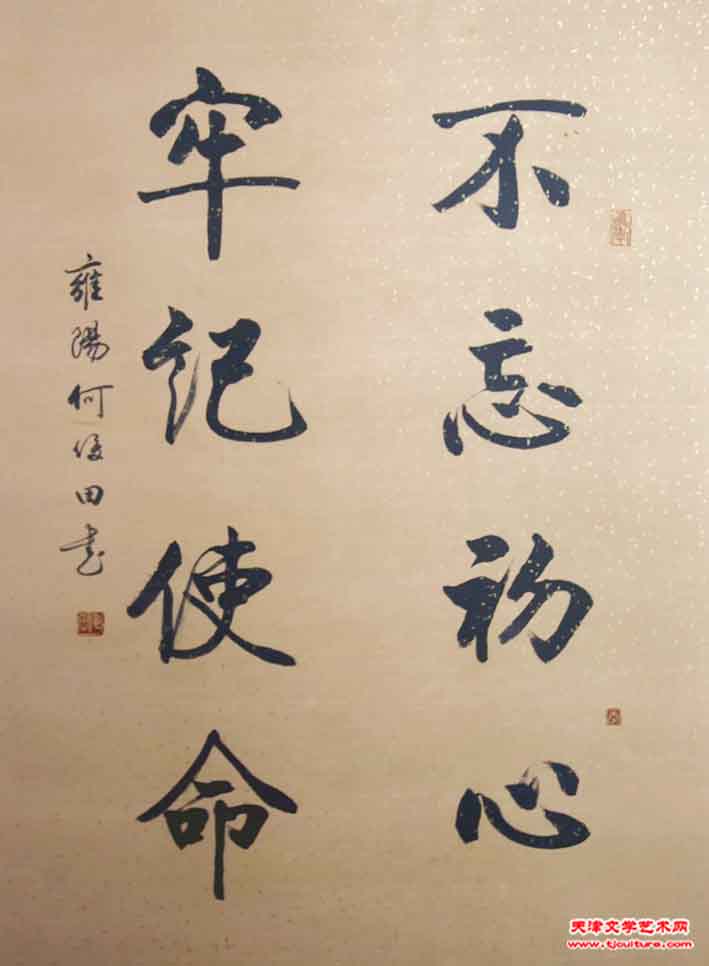 不忘初心
牢记使命
雍陽何俊田书
天津文学艺术网
www.tjculture.com